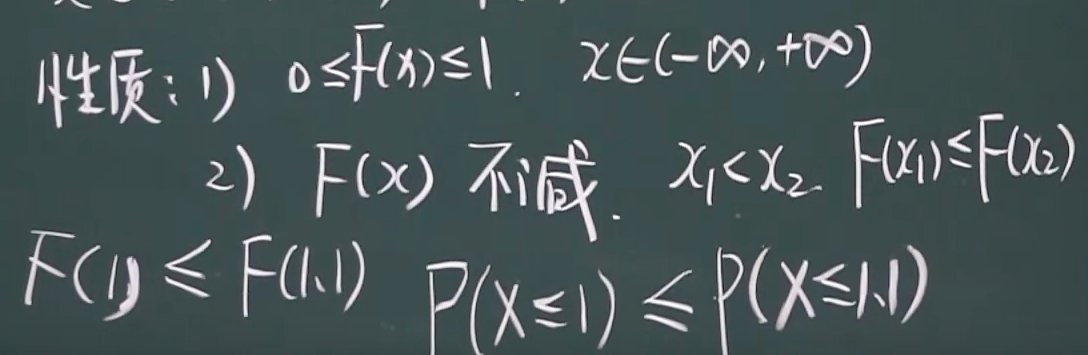 性质：1) 0≤F(x)≤1. x∈(-∞,+∞)
2) F(x) 不减. x₁<x₂ F(x₁)≤F(x₂)
F(1)≤F(1.1) P(X≤1)≤P(X≤1.1)